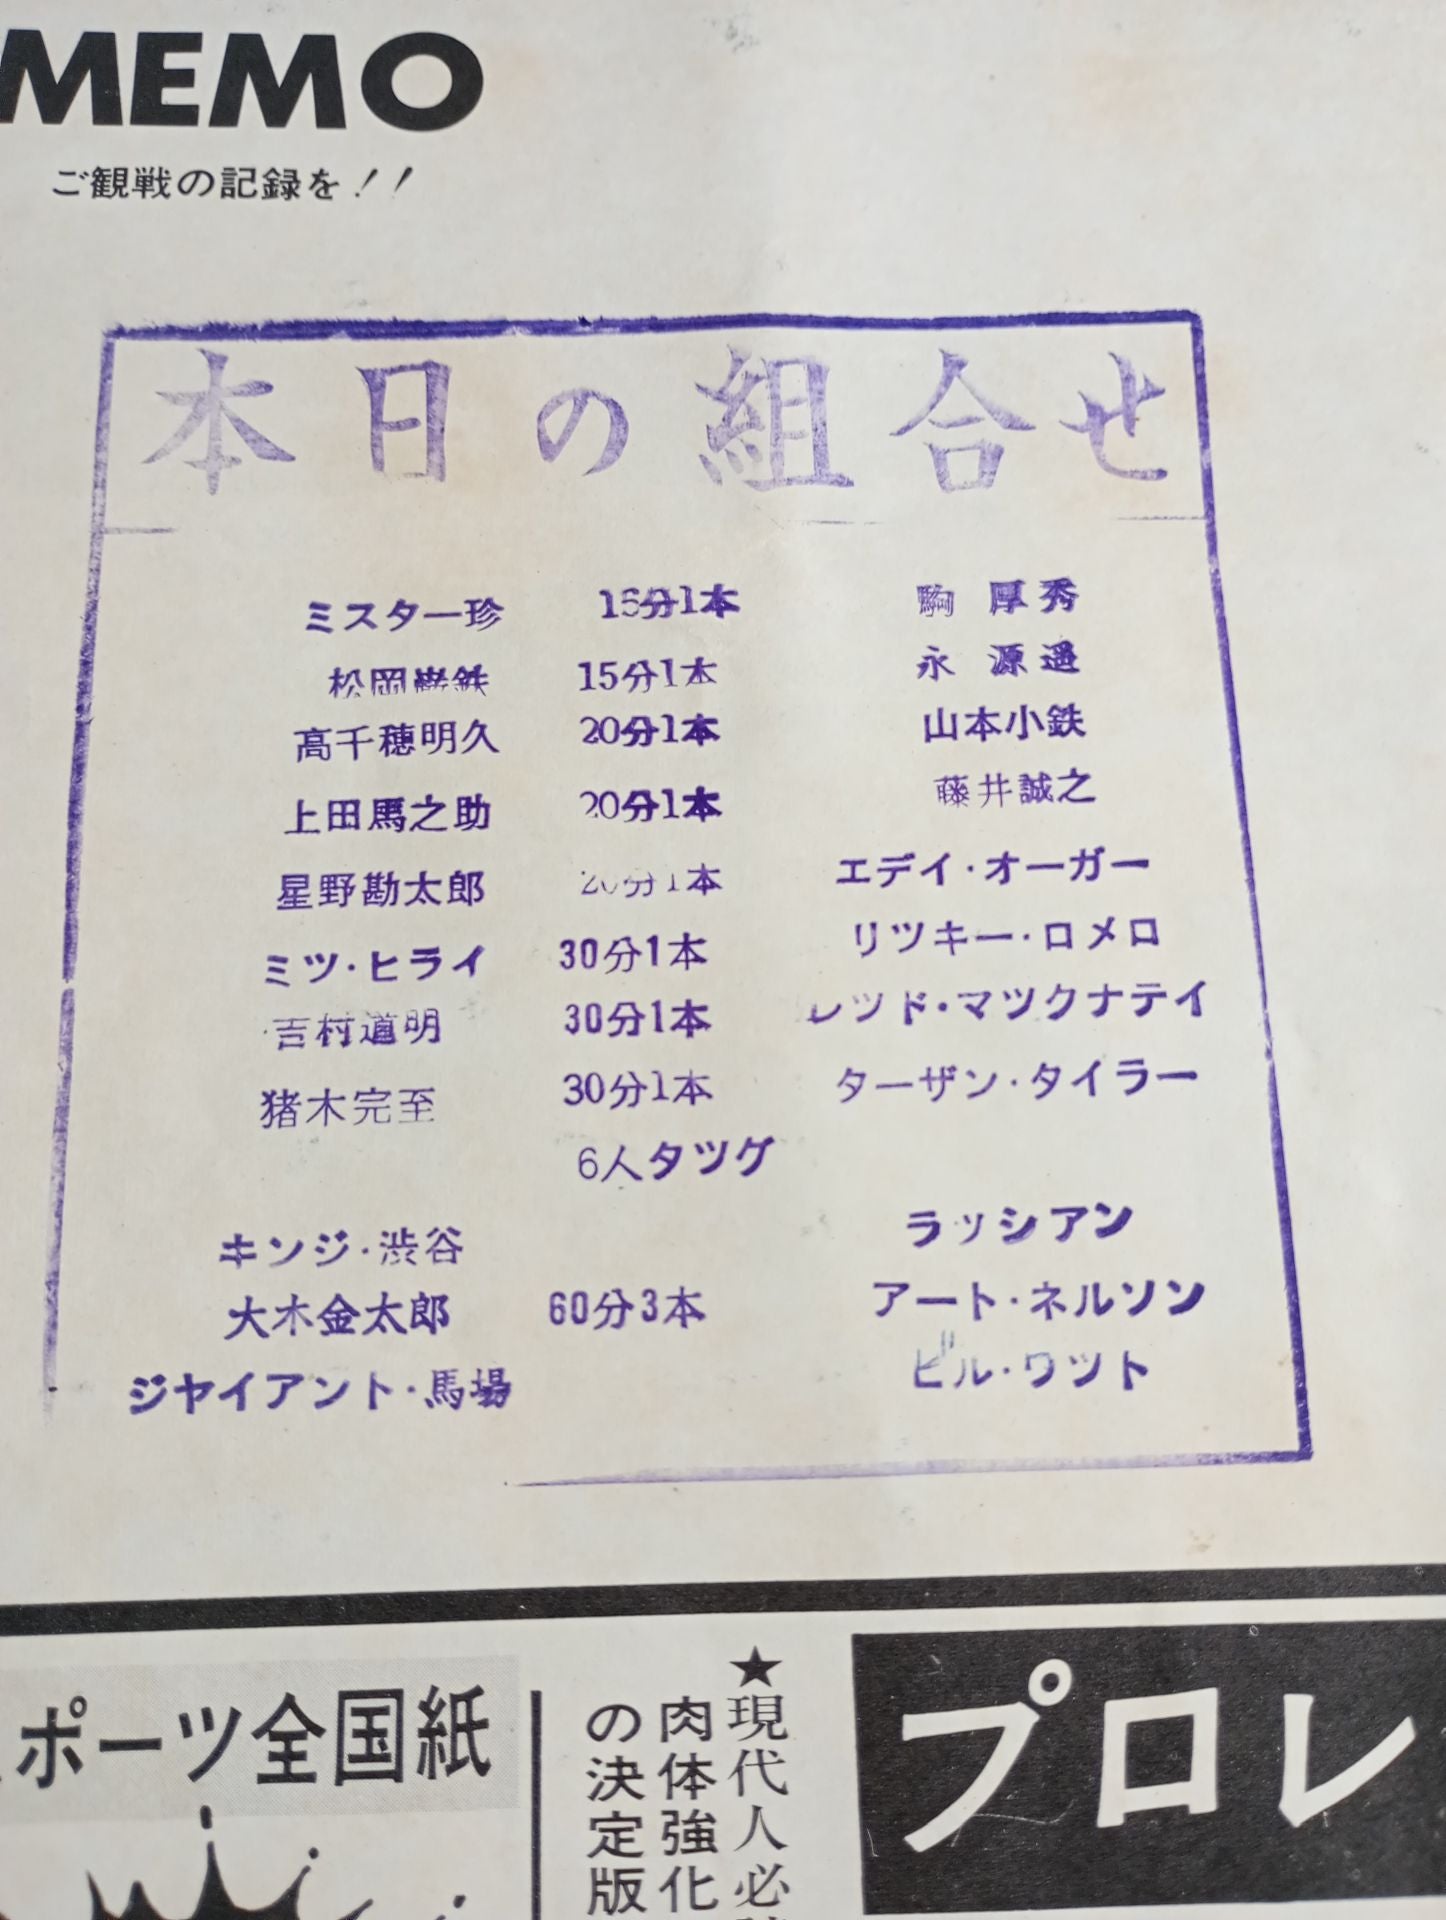 MEMO
ご観戦の記録を!!
本日の組合せ
ミスター珍 15分1本 駒 厚秀
松岡巌鉄 15分1本 永 源遥
高千穂明久 20分1本 山本小鉄
上田馬之助 20分1本 藤井誠之
星野勘太郎 20分1本 エデイ・オーガー
ミツ・ヒライ 30分1本 リツキー・ロメロ
吉村道明 30分1本 レツド・マツクナテイ
猪木完至 30分1本 ターザン・タイラー
6人タツグ
キンジ・渋谷 ラッシアン
大木金太郎 60分3本 アート・ネルソン
ジヤイアント・馬場 ビル・ワツト
ポーツ全国紙
★現代人必
肉体強化
の決定版
プロレ